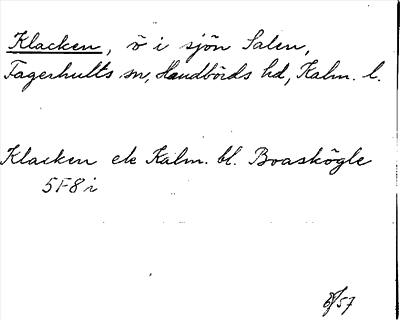 Klacken, ö i sjön Salen,
Fagerhults sn, Handbörds hd, Kalm. l.
Klacken ek Kalm. bl. Boaskögle
5F8i